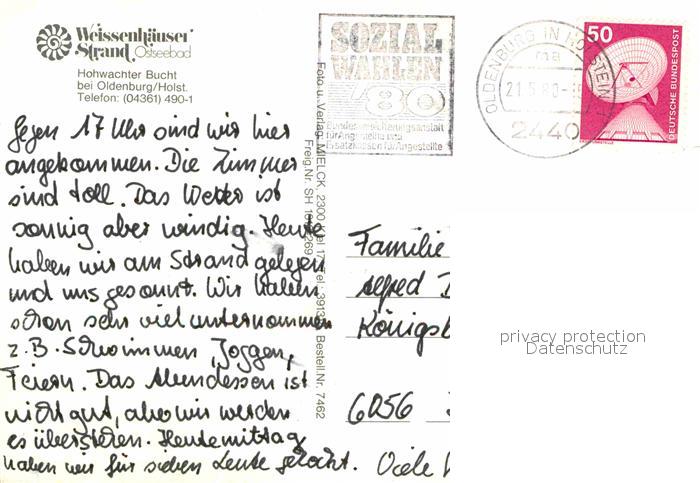 Weissenhäuser
Strand Ostseebad
Hohwachter Bucht
bei Oldenburg/Holst.
Telefon: (04361) 490-1
SOZIAL
WAHLEN
'80
Bundesversicherungsanstalt
für Angestellte und
Ersatzkassen für Angestellte
OLDENBURG IN HOLSTEIN
ma
21.5.80
2440
50
DEUTSCHE BUNDESPOST
Foto u. Verlag: MIELCK, 2300 Kiel 17, Tel. 3913 Bestell.Nr. 7462
Freig.Nr. SH 269
Gegen 17 Uhr sind wir hier
angekommen. Die Zimmer
sind toll. Das Wetter ist
sonnig aber windig. Heute
haben wir am Strand gelegen
und uns gesonnt. Wir haben
schon sehr viel unternommen
z.B. Schwimmen, Joggen,
Feiern. Das Abendessen ist
nicht gut, aber wir werden
es überstehen. Heute mittag
haben wir für sieben Leute gekocht. Viele
Familie
Alfred
Königsb
6056
privacy protection
Datenschutz